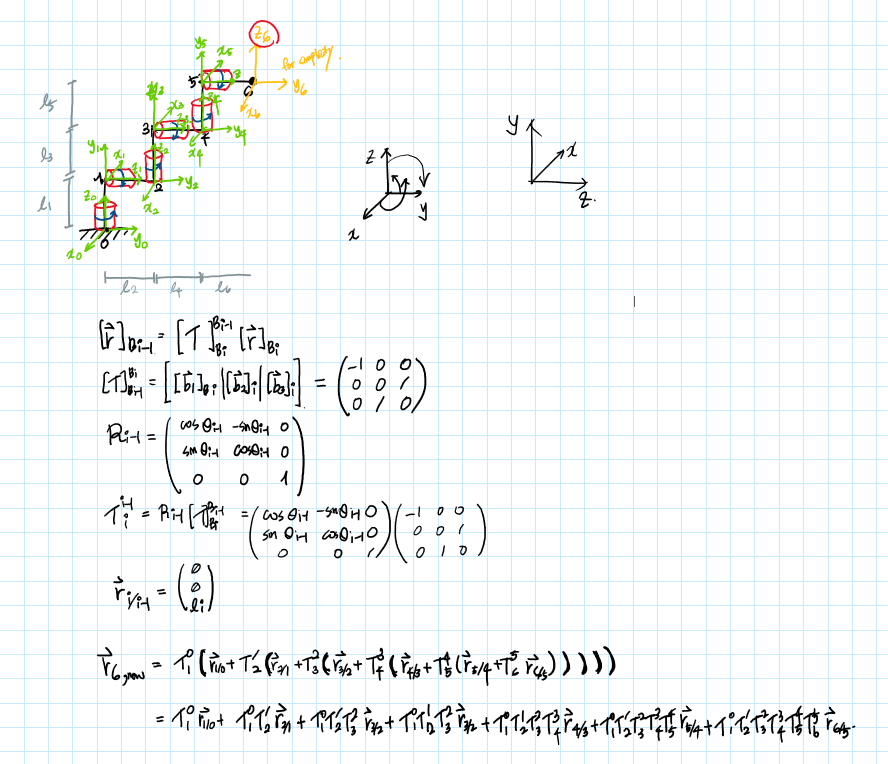 z₆
y₅ x₅
for simplicity.
5 6 y₆
x₆
l₅
3 x₃
4 y₄
x₄
l₃
y₁ x₁
1 2 y₂
x₂
l₁
z₀
0 y₀
x₀
l₂ l₄ l₆
z
y
x
y
x
z.
[r⃗]_{Bi-1} = [T]^{Bi-1}_{Bi} [r⃗]_{Bi}
[T]^{Bi}_{Bi-1} = [[b⃗₁]_{Bi} | [b⃗₂]_i | [b⃗₃]_i] = (-1 0 0
0 0 1
0 1 0)
R_{i-1} = (cosθ_{i-1} -sinθ_{i-1} 0
sinθ_{i-1} cosθ_{i-1} 0
0 0 1)
T^{i-1}_i = R_{i-1} [T]^{Bi-1}_{Bi} = (cosθ_{i-1} -sinθ_{i-1} 0)(-1 0 0
sinθ_{i-1} cosθ_{i-1} 0 0 0 1
0 0 1 0 1 0)
r⃗_{i/i-1} = (0
0
l_i)
= T^0_1 (r⃗_{1/0} + T^1_2 (r⃗_{2/1} + T^2_3 (r⃗_{3/2} + T^3_4 (r⃗_{4/3} + T^4_5 (r⃗_{5/4} + T^5_6 r⃗_{6/5})))))
= T^0_1 r⃗_{1/0} + T^0_1 T^1_2 r⃗_{2/1} + T^0_1 T^1_2 T^2_3 r⃗_{3/2} + T^0_1 T^1_2 T^2_3 r⃗_{3/2} + T^0_1 T^1_2 T^2_3 T^3_4 r⃗_{4/3} + T^0_1 T^1_2 T^2_3 T^3_4 T^4_5 r⃗_{5/4} + T^0_1 T^1_2 T^2_3 T^3_4 T^4_5 T^5_6 r⃗_{6/5}.